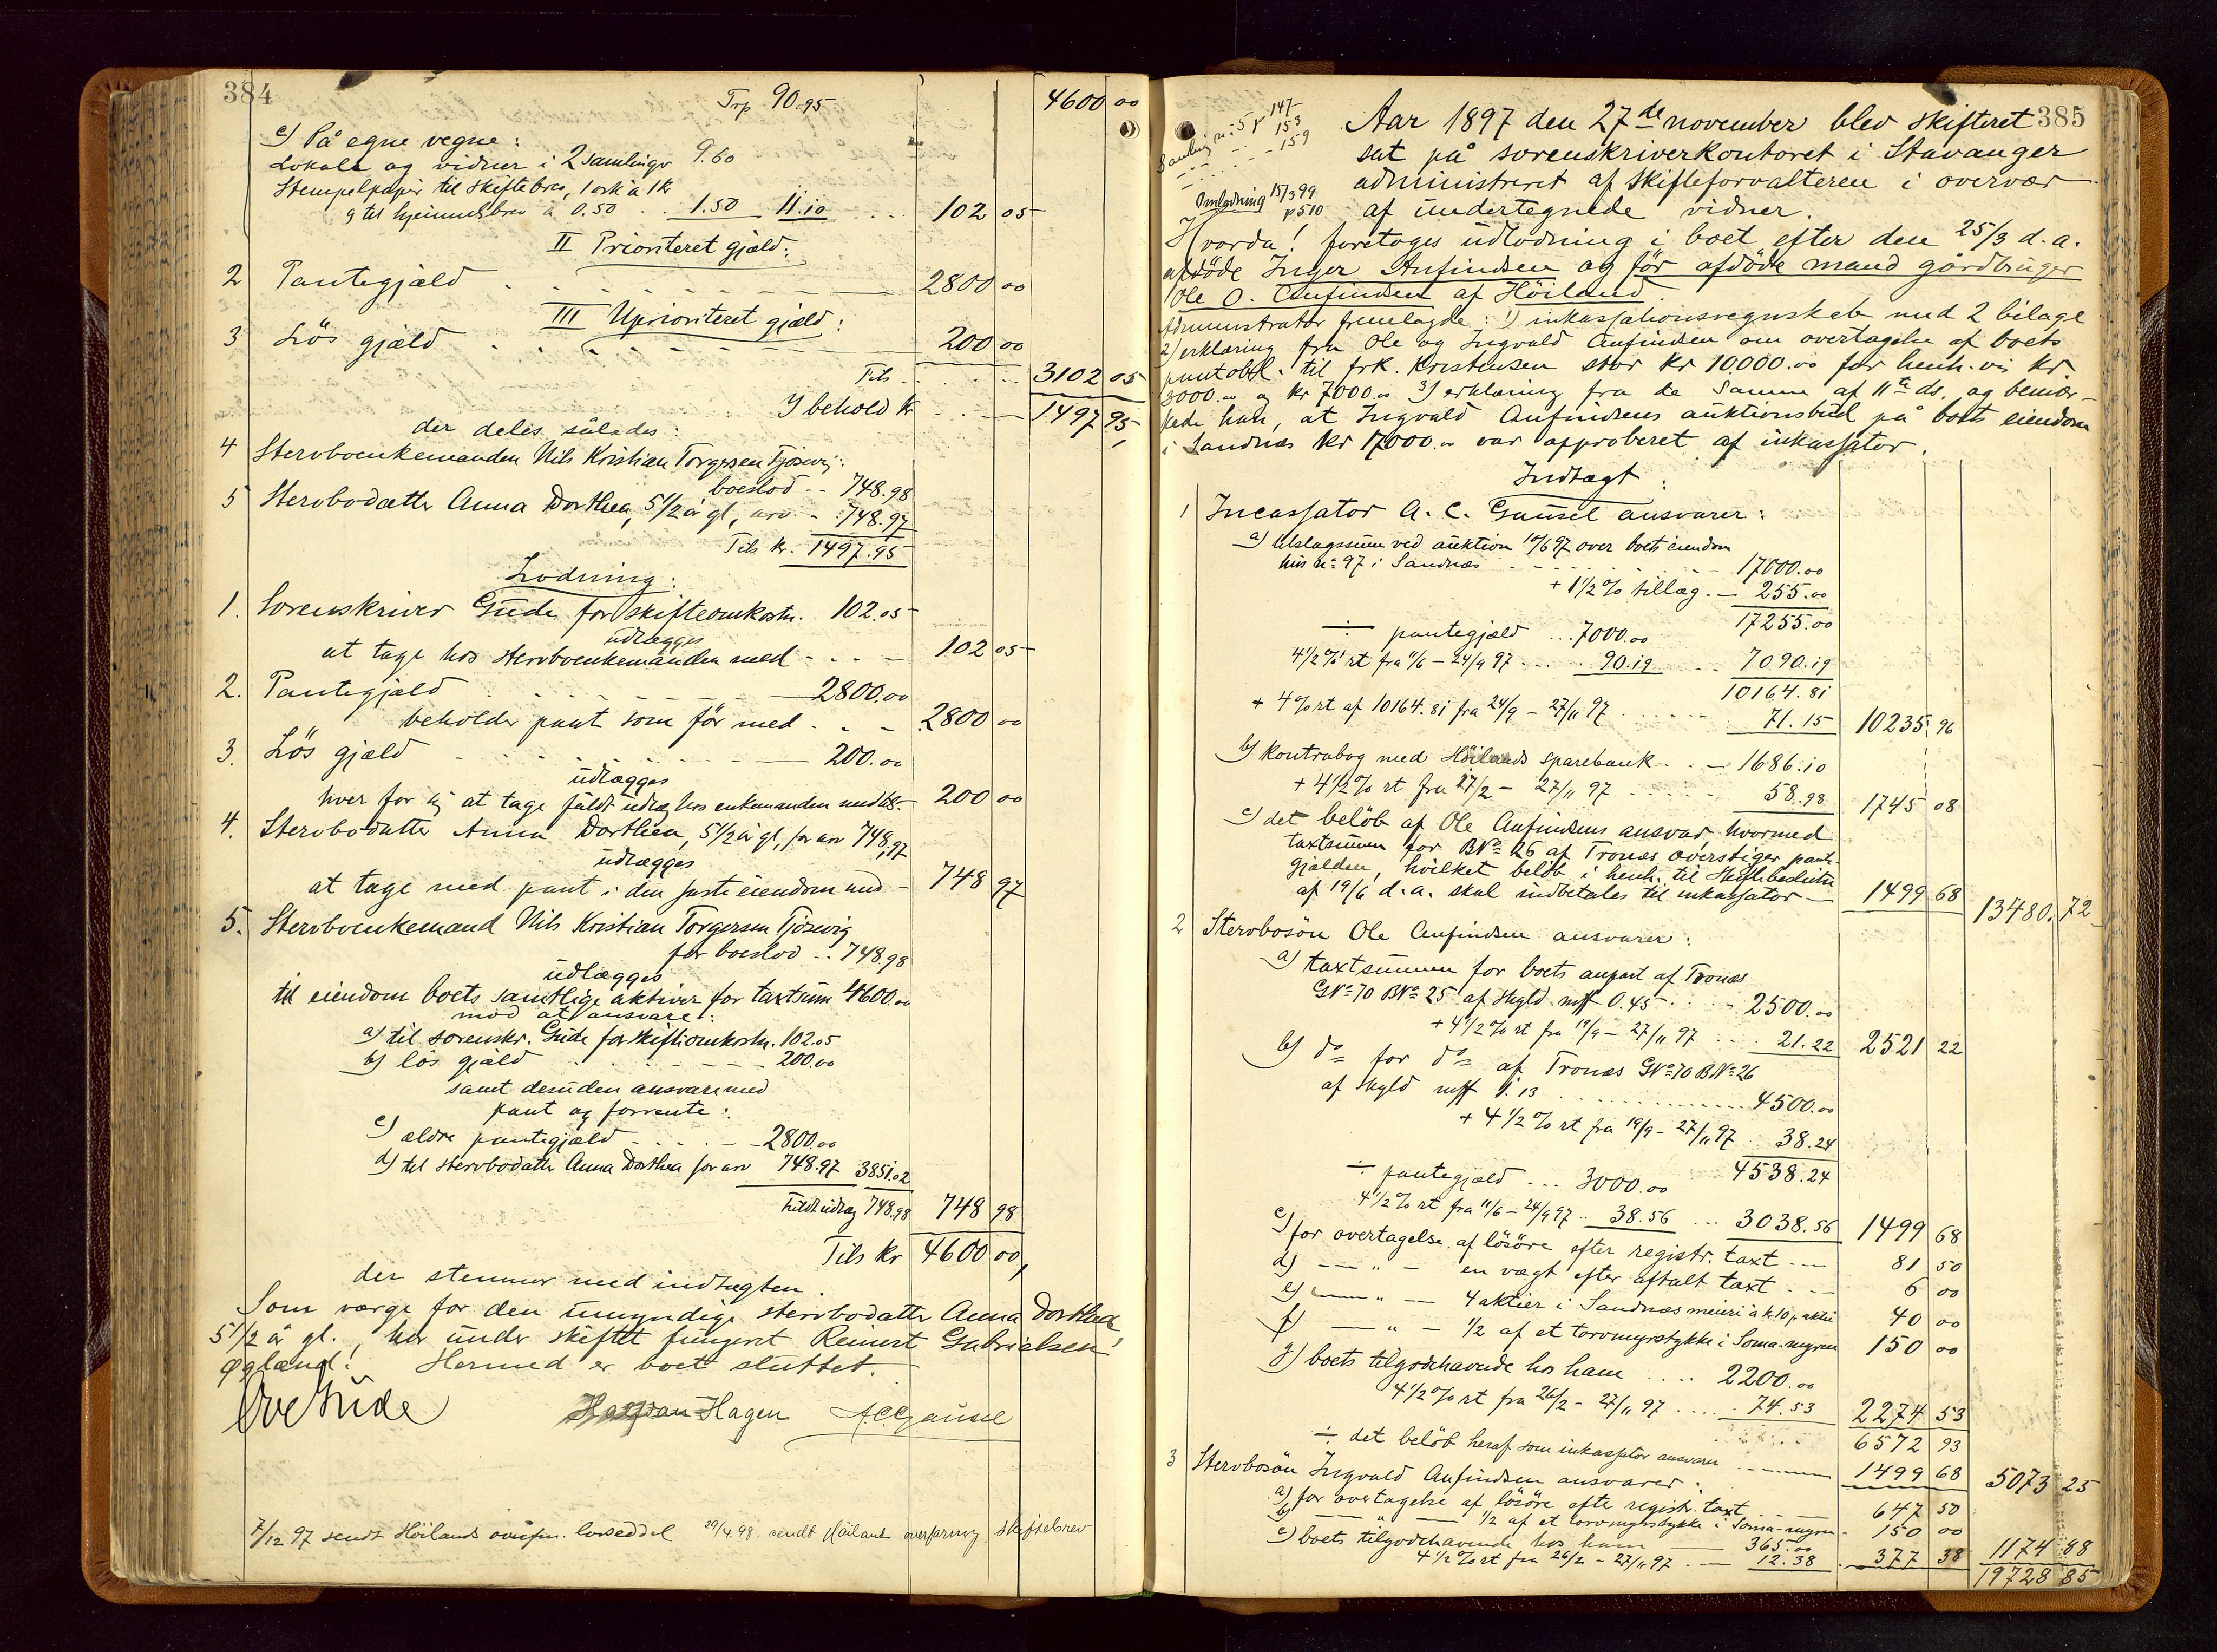 384
Trp 90.95 4600 00
c) På egne vegne:
Lokale og vidner i 2 samlinger 9.60
Stempelpapir til skiftebrev, 1 ark à 1 kr
g til hjemmelsbrev à 0.50 .. 1.50 11.10 .... 102 05
II Prioriteret gjæld:
2 Pantegjæld 2800 00
III Uprioriteret gjæld:
3 Lös gjæld 200 00
Tils. 3102 05
I behold kr 1497 95,
der deles således:
4 Stervboenkemanden Nils Kristian Torgersen Tjösvig:
boeslod .. 748.98
5 Stervbodatter Anna Dorthea, 5 1/2 år gl, arv - 748.97
Tils kr. 1497.95
Lodning:
1. Sorenskriver Gude for skifteomkostn. 102.05
udlægges
at tage hos stervboenkemanden med - 102 05
2. Pantegjæld 2800.00
beholder pant som för med - 2800 00
3. Lös gjæld 200.00
udlægges
hver for sig at tage fuldt udlæg hos enkemanden med tils.- 200 00
4. Stervbodatter Anna Dorthea, 5 1/2 år gl, for arv 748,97
udlægges
at tage med pant i den faste eiendom med - 748 97
5. Stervboenkemand Nils Kristian Torgersen Tjösvig
for boeslod .. 748.98
udlægges
til eiendom boets samtlige aktiver for taxtsum 4600.00
mod at ansvare:
a) til sorenskr. Gude for skifteomkostn. 102.05
b) lös gjæld 200.00
samt desuden ansvare med
pant og forrente:
c) ældre pantegjæld 2800.00
d) til stervbodatter Anna Dorthea for arv 748.97 3851.02
Fuldt udlæg 748.98 748 98
Tils kr 4600 00,
der stemmer med indtægten.
Som værge for den umyndige stervbodatter Anna Dorthea,
5 1/2 år gl., har under skiftet fungeret Reinert Gabrielsen
Øgland. Hermed er boet sluttet.
Ove Gude Hagen A C Gausel
7/12 97 sendt Höilands lovseddel 29/4.98. sendt Höiland skiftebrev
385
Samling n: 5 p 147
- - - 153
- - - 159
Omlodning 15/3 99
p 510
Aar 1897 den 27de november blev skifteret
sat på sorenskriverkontoret i Stavanger
administreret af skifteforvalteren i overvær
af undertegnede vidner.
Hvorda! foretoges udlodning i boet efter den 25/3 d.a.
afdöde Inger Anfindsen og för afdöde mand gårdbruger
Ole O. Anfindsen af Höiland.
Administrator fremlagde: 1) inkassationsregnskab med 2 bilage
2) erklæring fra Ole og Ingvald Anfindsen om overtagelse af boets
pantobl. til frk. Kristensen stor kr 10000.00 for henh. vis kr.
3000.00 og kr 7000.00 3) erklæring fra de samme af 11te ds. og bemær-
kede han, at Ingvald Anfindsens auktionsbud på boets eiendom
i Sandnæs kr 17000.00 var approberet af inkassator.
Indtægt:
1 Incassator A. C. Gausel ansvarer:
a) tilslagssum ved auktion 10/6 97 over boets eiendom
hus n: 97 i Sandnæs 17000.00
+ 1 1/2 % tillæg. - 255.00
17255.00
÷ pantegjæld ... 7000.00
4 1/2 % rt fra 11/6 - 24/9 97 90.19 7090.19
10164.81
+ 4 % rt af 10164.81 fra 24/9 - 27/11 97 71.15 10235.96
b) kontrabog med Höilands sparebank 1686.10
+ 4 1/2 % rt fra 27/2 - 27/11 97 58.98 1745 08
c) det belöb af Ole Anfindsens ansvar, hvormed
taxtsummen for BNo 26 af Tronæs overstiger pante-
gjælden, hvilket belöb i henh. til skiftebeslutn.
af 19/6 d.a. skal indbetales til inkassator - 1499 68 13480.72
2 Stervbosön Ole Anfindsen ansvarer:
a) taxtsummen for boets anpart af Tronæs
GNo 70 BNo 25 af skyld mk 0.45 2500.00
+ 4 1/2 % rt fra 19/9 - 27/11 97 21.22 2521 22
b) do for do af Tronæs GNo 70 BNo 26
af skyld mk 1.13 4500.00
+ 4 1/2 % rt fra 19/9 - 27/11 97 38.24
4538.24
÷ pantegjæld ... 3000.00
4 1/2 % rt fra 11/6 - 24/9 97 38.56 ... 3038.56 1499 68
c) for overtagelse af lösöre efter registr. taxt 81 50
d) — " — en vægt efter aftalt taxt 6 00
e) — " — 4 aktier i Sandnæs meieri à k 10 pr aktie 40 00
f) — " — 1/2 af et torvmyrstykke i Soma-myren 150 00
g) boets tilgodehavende hos ham .... 2200.00
4 1/2 % rt fra 26/2 - 27/11 97 74.53 2274 53
6572 93
÷ det belöb heraf som inkassator ansvarer 1499 68 5073 25
3 Stervbosön Ingvald Anfindsen ansvarer:
a) for overtagelse af lösöre efter registr. taxt 647 50
b) — " — 1/2 af et torvmyrstykke i Soma-myren 150 00
c) boets tilgodehavende hos ham 365.00
4 1/2 % rt fra 26/2 - 27/11 97 12.38 377 38 1174 88
19728 85